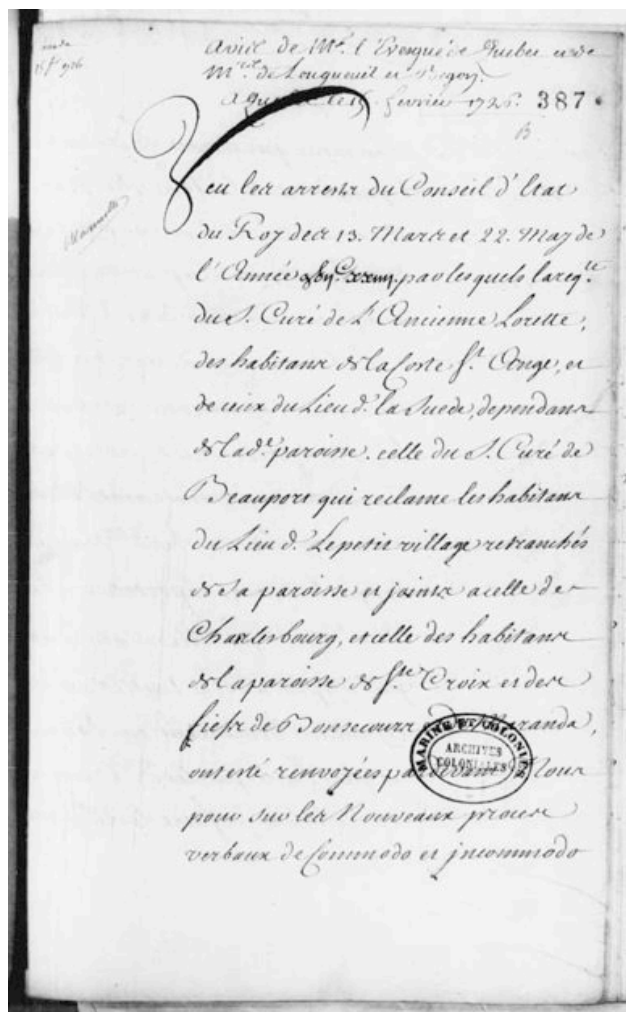 Avis de Mr. l'Evesque de Quebec et de
Mrs. de Longueuil et Begon.
A Quebec le 15. fevrier 1726. 387
B
15 fr 1726
Veu les arrests du Conseil d'Etat
du Roy des 13. Mars et 22. May de
l'Année par lesquels la reqte.
du S. Curé de L'Ancienne Lorette,
des habitans de la Coste St. Ange, et
de ceux du Lieu d. la Suede, dependans
de lade. paroisse. celle du S. Curé de
Beauport qui reclame les habitans
du Lieu d. Le petit village retranchés
de sa paroisse et joints a celle de
Charlesbourg, et celle des habitans
de la paroisse de Ste. Croix et des
fiefs de Bonsecours
ont esté renvoyées pardevant Nous
pour sur les Nouveaux procés
verbaux de Commodo et jncommodo
MARINE ET COLONIES
ARCHIVES
COLONIALES